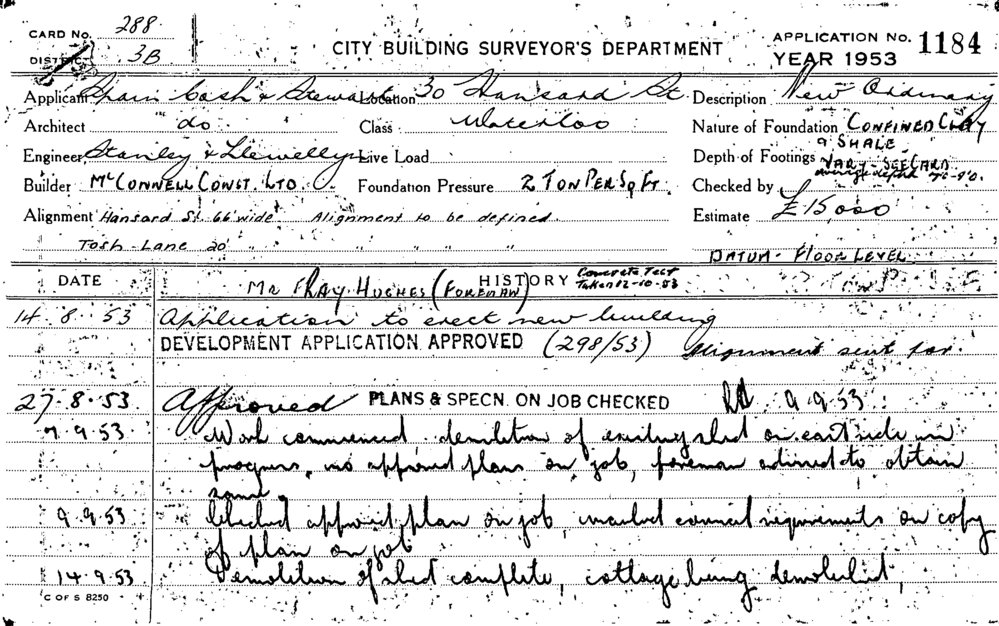 CARD No. 288
DISTRICT 3B
CITY BUILDING SURVEYOR'S DEPARTMENT
APPLICATION No. 1184
YEAR 1953
Applicant Spain Cash & Stewart Location 30 Hansard St. Description New Ordinary
Architect do Class Waterloo Nature of Foundation CONFINED CLAY
& SHALE
Engineer Stanley & Llewellyn Live Load Depth of Footings VARY - SEE CARD
average depth 7'-9'0.
Builder McCONNELL CONST. LTD. Foundation Pressure 2 TON PER SQ FT. Checked by
Alignment Hansard St 66' wide Alignment to be defined. Estimate £15,000
Tosh Lane 20' " " " "
DATUM - FLOOR LEVEL
DATE HISTORY
MR RAY HUGHES (FOREMAN) Concrete Test
Taken 12-10-53
14.8.53 Application to erect new building
DEVELOPMENT APPLICATION APPROVED (298/53) Alignment sent for.
27.8.53 Approved PLANS & SPECN. ON JOB CHECKED 9.9.53
7.9.53 Work commenced demolition of existing shed on east side in
progress, no approved plans on job, foreman advised to obtain
same.
9.9.53 Checked approved plan on job, marked council requirements on copy
of plan on job
14.9.53 Demolition of shed complete, cottage being demolished,
C OF S 8250